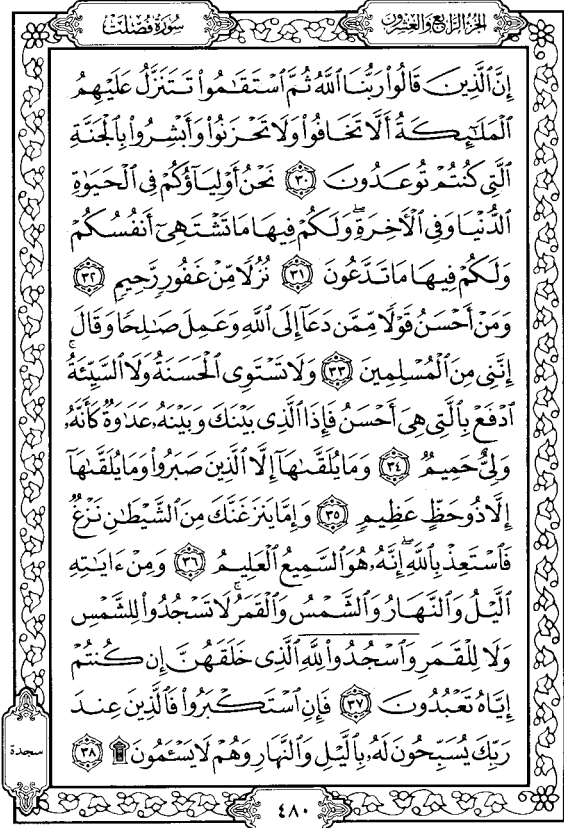 سُورَةُ فُصِّلَتْ
الجُزْءُ الرَّابِعُ وَالعِشْرُونَ
إِنَّ ٱلَّذِينَ قَالُوا۟ رَبُّنَا ٱللَّهُ ثُمَّ ٱسْتَقَٰمُوا۟ تَتَنَزَّلُ عَلَيْهِمُ
ٱلْمَلَٰٓئِكَةُ أَلَّا تَخَافُوا۟ وَلَا تَحْزَنُوا۟ وَأَبْشِرُوا۟ بِٱلْجَنَّةِ
ٱلَّتِى كُنتُمْ تُوعَدُونَ ٣٠ نَحْنُ أَوْلِيَآؤُكُمْ فِى ٱلْحَيَوٰةِ
ٱلدُّنْيَا وَفِى ٱلْأَخِرَةِ ۖ وَلَكُمْ فِيهَا مَا تَشْتَهِىٓ أَنفُسُكُمْ
وَلَكُمْ فِيهَا مَا تَدَّعُونَ ٣١ نُزُلًا مِّنْ غَفُورٍ رَّحِيمٍ ٣٢
وَمَنْ أَحْسَنُ قَوْلًا مِّمَّن دَعَآ إِلَى ٱللَّهِ وَعَمِلَ صَٰلِحًا وَقَالَ
إِنَّنِى مِنَ ٱلْمُسْلِمِينَ ٣٣ وَلَا تَسْتَوِى ٱلْحَسَنَةُ وَلَا ٱلسَّيِّئَةُ ۚ
ٱدْفَعْ بِٱلَّتِى هِىَ أَحْسَنُ فَإِذَا ٱلَّذِى بَيْنَكَ وَبَيْنَهُۥ عَدَٰوَةٌ كَأَنَّهُۥ
وَلِىٌّ حَمِيمٌ ٣٤ وَمَا يُلَقَّىٰهَآ إِلَّا ٱلَّذِينَ صَبَرُوا۟ وَمَا يُلَقَّىٰهَآ
إِلَّا ذُو حَظٍّ عَظِيمٍ ٣٥ وَإِمَّا يَنزَغَنَّكَ مِنَ ٱلشَّيْطَٰنِ نَزْغٌ
فَٱسْتَعِذْ بِٱللَّهِ ۖ إِنَّهُۥ هُوَ ٱلسَّمِيعُ ٱلْعَلِيمُ ٣٦ وَمِنْ ءَايَٰتِهِ
ٱلَّيْلُ وَٱلنَّهَارُ وَٱلشَّمْسُ وَٱلْقَمَرُ ۚ لَا تَسْجُدُوا۟ لِلشَّمْسِ
وَلَا لِلْقَمَرِ وَٱسْجُدُوا۟ لِلَّهِ ٱلَّذِى خَلَقَهُنَّ إِن كُنتُمْ
إِيَّاهُ تَعْبُدُونَ ٣٧ فَإِنِ ٱسْتَكْبَرُوا۟ فَٱلَّذِينَ عِندَ
رَبِّكَ يُسَبِّحُونَ لَهُۥ بِٱلَّيْلِ وَٱلنَّهَارِ وَهُمْ لَا يَسْـَٔمُونَ ۩ ٣٨
سجدة
٤٨٠